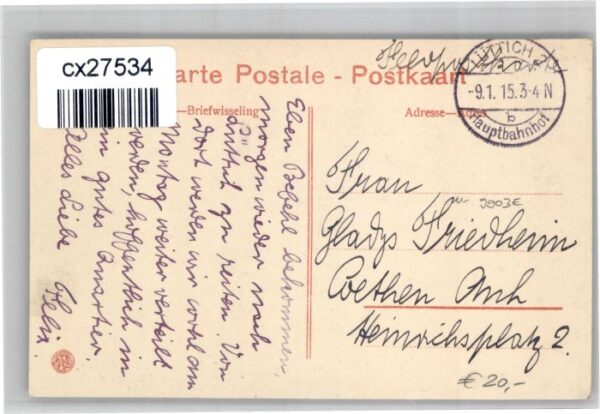 cx27534
Carte Postale - Postkaart
Feldpostkarte
LÜTTICH
-9.1.15.3-4 N
b
Hauptbahnhof
-Briefwisseling
Adresse-
Eben Befehl bekommen,
morgen wieder nach
Lüttich zu reiten. Von
dort werden wir wohl am
Montag weiter verteilt
werden, hoffentlich in
ein gutes Quartier.
Alles Liebe
Felix.
Frau
Gladys Friedheim
Coethen Anh
Heinrichsplatz 2.
€ 20,-